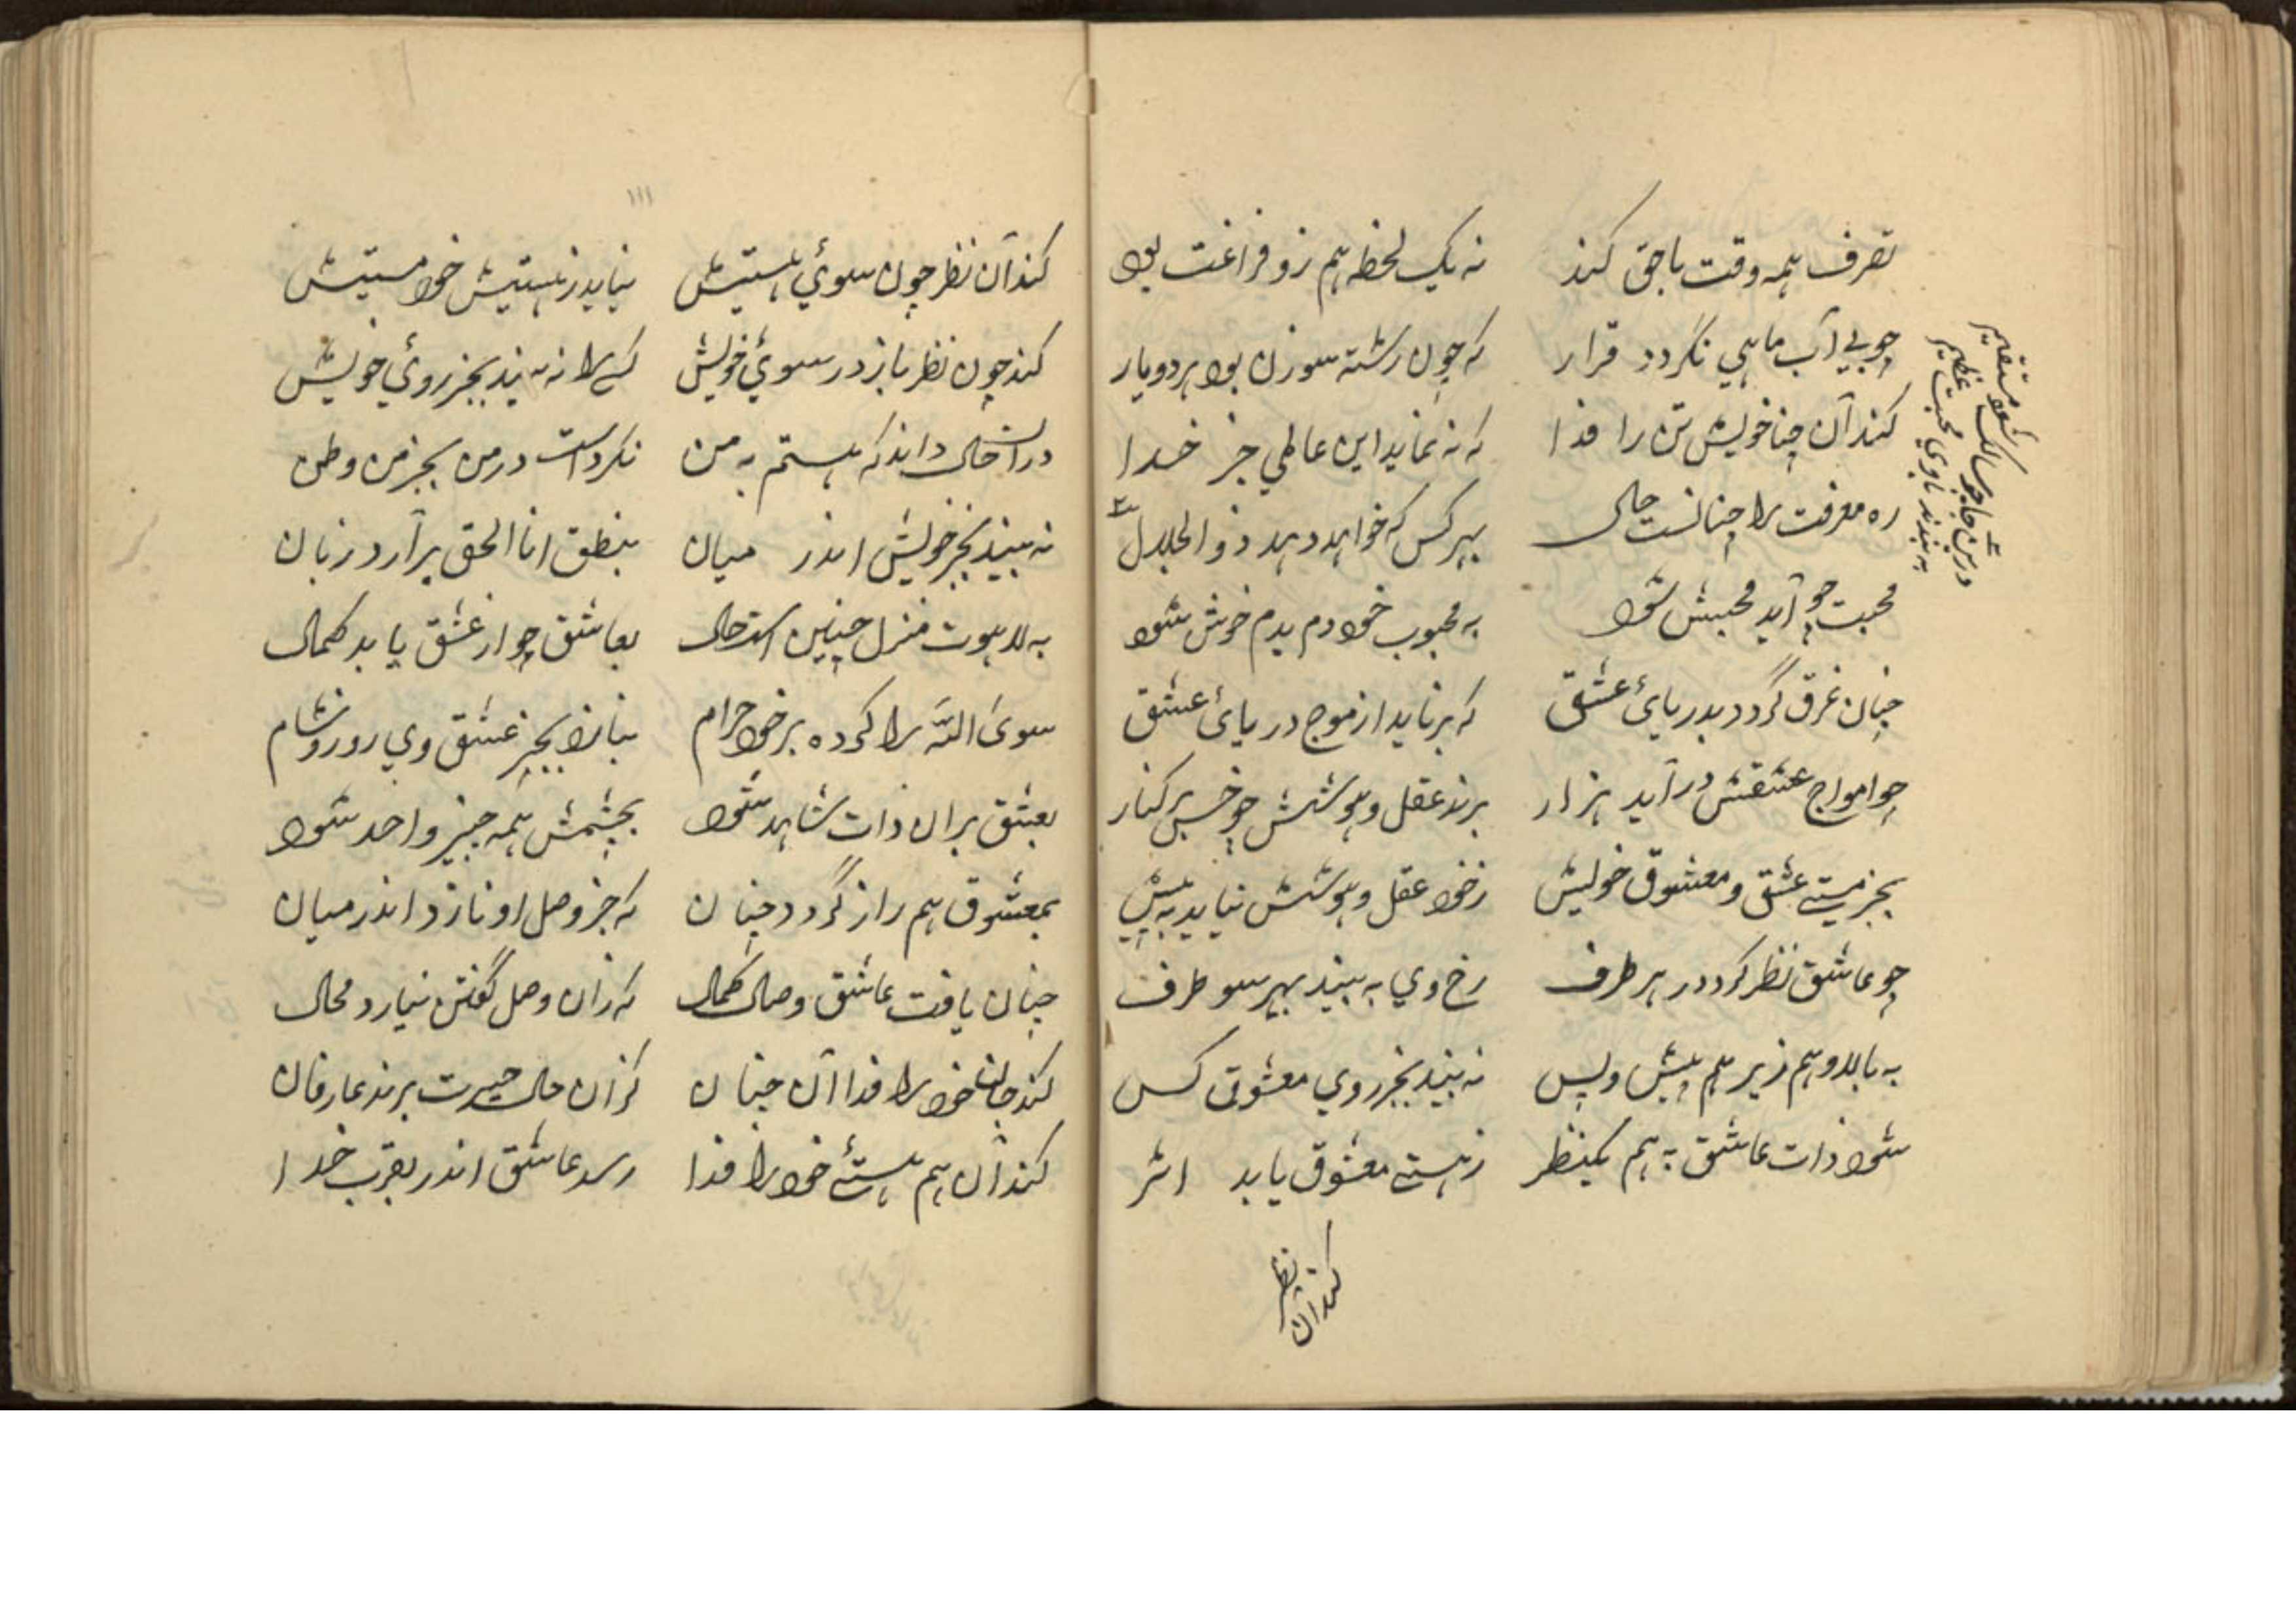 تصرف همه وقت باحق کند نه یک لحظه هم زو فراغت بود
چو بی آب ماهی نگردد قرار که چون رشته سوزن بود هر دو یار
کند آن چنا خویش تن را فدا که نه نماید این عاطی جز خدا
ره معرفت را چنانست حال بهر کس که خواهد دهد ذوالجلال
محبت چو آید محبش شود به محبوب خود دم بدم خوش شود
چنان غرق گردد بدریائ عشق که برناید از موج دریائ عشق
چو امواج عشقش درآید هزار برند عقل و هوشش چو خس بر کنار
بجز مستے عشق و معشوق خویش زخود عقل و هوشش نیاید به پیش
چو عاشق نظر کردد در هر طرف رخ وی به بیند بهر سو طرف
به بالا و هم زیر هم پیش و پس نه بیند بجز روی معشوق کس
شود ذات عاشق به هم یکنظر ز هستے معشوق یابد اثر
درین جا چو سالک شود مستقیم
به بندند باوی محبت عظیم
کند آن نظر
۱۱۱
کند آن نظر چون سوئ هستیش نیاید ز هستیش خود مستیش
کند چون نظر باز در سوئ خویش کسے را نه بیند بجز روئ خویش
دران حال داند که هستم به من نکرداست در من بجز من وطن
نه بیند بجز خویش اندر میان بنطق انا الحق برآرد زبان
به لاهوت منزل چنین است حال بعاشق چو از عشق یابد کمال
سوئ اللّه را کرده بر خود حرام نبازد بجز عشق وی روز و شام
بعشق بران ذات شاهد شود بچشمش همه چیز واحد شود
بمعشوق هم راز گردد چنان که جز وصل او نازد اندر میان
چنان یافت عاشق وصال کمال که زان وصل گفتن نیارد محال
کند جان خود را فدا آن چنان کزان حال حیرت برند عارفان
کند آن هم هستئے خود را فدا رسد عاشق اندر بقرب خدا